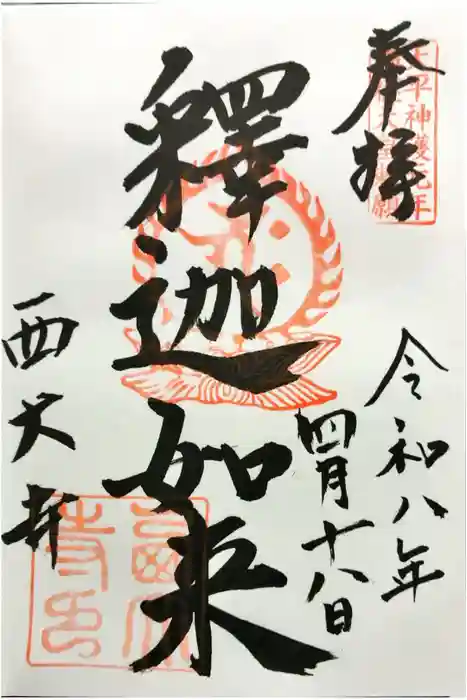 奉拝
天平神護元年
令和八年
四月十八日
釋迦如来
西大寺
西大
寺印